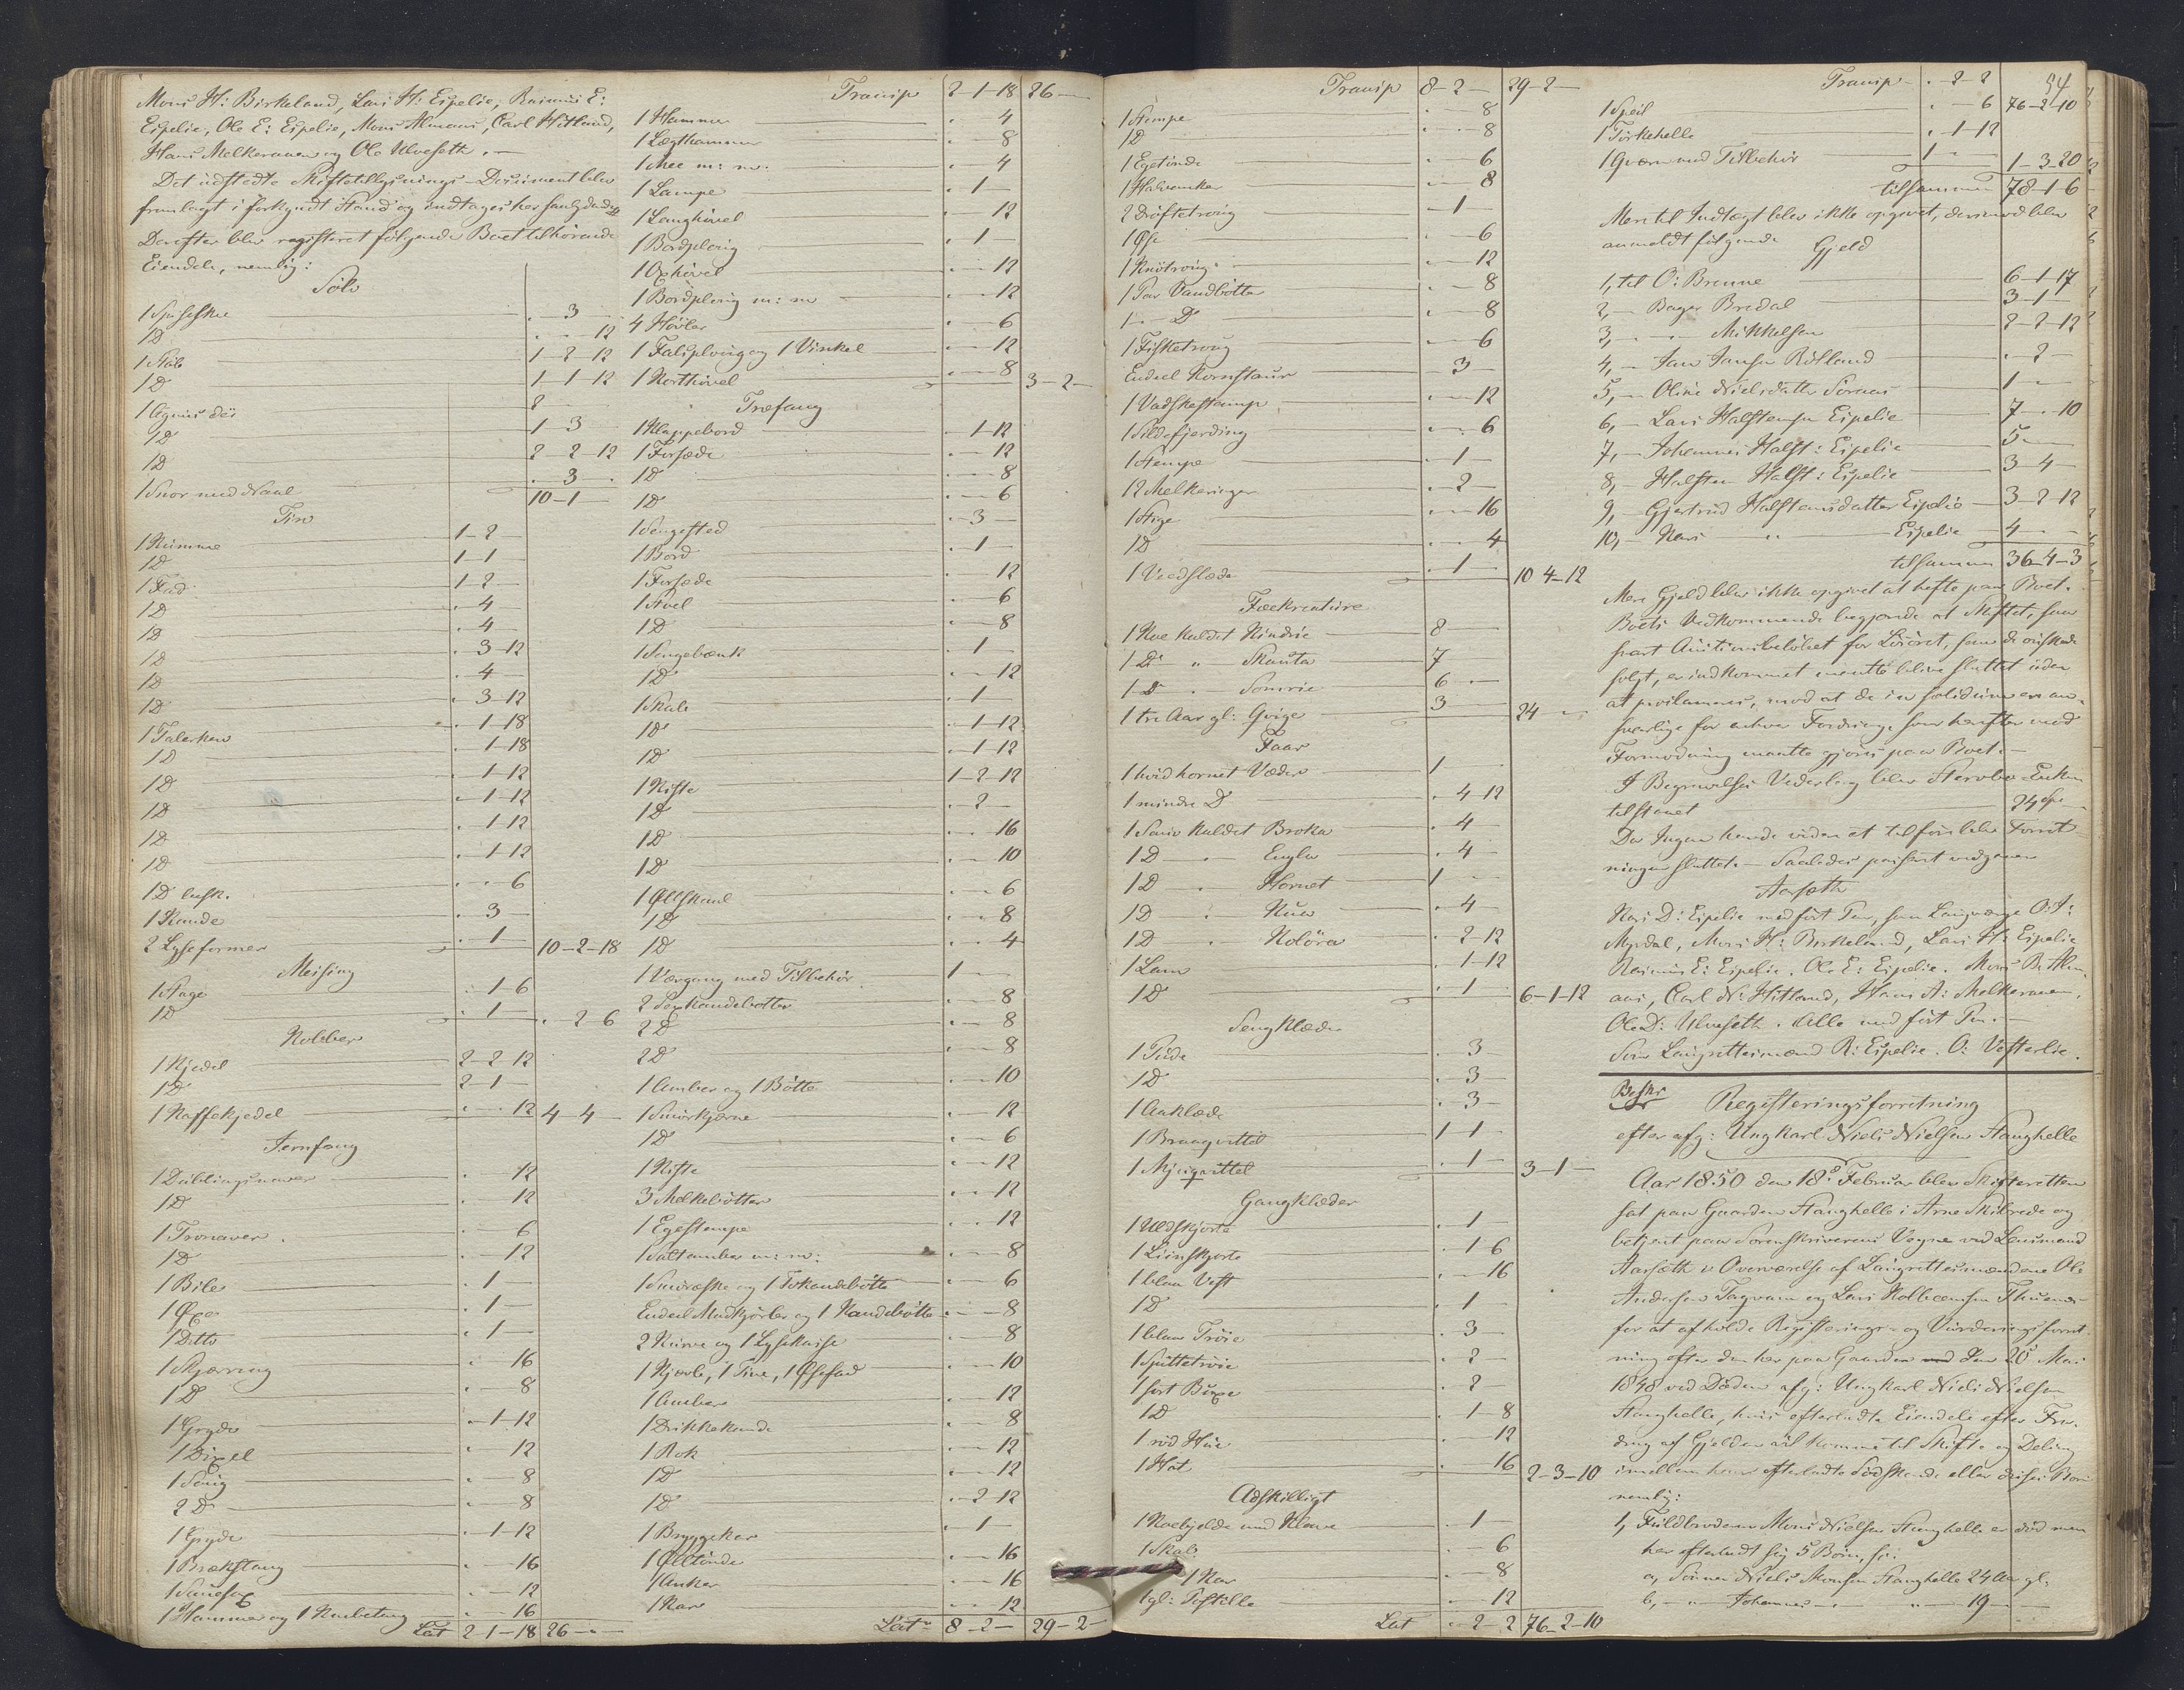 Mons H: Birkeland, Lars H: Espelie, Rasmus E:
Espelie, Ole E: Espelie, Mons Almaas, Carl Hitland,
Hans Melkeraaen og Ole Ulveseth. —
Det udstedte Skiftetillysnings-Document blev
fremlagt i forkyndt Stand og indtages her saalydende
Derefter blev registeret følgende Boet tilhørende
Eiendele, nemlig:
Sølv
1 Spiseskee . 3 —
1 D . — 12
1 Støb 1-2-12
1 D 1-1-12
1 Agnus dei 2 —
1 D 1-3
1 D 2-2-12
1 Snor med Naal . 3 .
10-1 —
Tin
1 Kumme 1-2
1 D 1-1
1 Fad 1-2
1 D . 4
1 D . 4
1 D . 3-12
1 D . 4
1 D . 3-12
1 Talerken . 1-18
1 D . 1-18
1 D . 1-12
1 D . 1-12
1 D . 1-12
1 D . 1-12
1 D . . 6
1 Kande . 3
2 Lyseformer . 1 — 10-2-18
Messing
1 Stage . 1-6
1 D . 1 — . 2 6
Kobber
1 Kjedel 2-2-12
1 D 2-1
1 Kaffekjedel . . 12 4-4
Jernfang
1 Dublingsnaver . 12
1 D . 12
1 Tronaver . . 6
1 D . 12
1 Bile . 1
1 Øxe . 1
1 Ditto . 1
1 Skjæreng . 16
1 D . 8
1 Gryde . 1-12
1 Dixel . 12
1 Saug . 8
2 D . 8
1 Gryde . 1-12
1 Brækstang . 16
1 Sauesax . 12
1 Hammer og 1 Knibetang . 16
Lat 2-1-18 26 — . —
Transp 2-1-18 26 —
1 Hammer . 4
1 Lægthammer . 8
1 Mee m: m: . 4
1 Lampe . 1
1 Langhøvel . 12
1 Bordploug . 1
1 Oxhøvel . 12
1 Bordploug m: m . 12
4 Høvler . 6
1 Falsploug og 1 Vinkel . 12
1 Korthøvel . 8 3-2
Træfang
1 Klappebord . 1-12
1 Forsæde . 12
1 D . 8
1 D . 6
1 Sengested . 3
1 Bord . 1
1 Forsæde . 12
1 Stoel . 6
1 D . 8
1 Sengebænk . 1
1 D . 12
1 Skab . 1
1 D . 1-12
1 D . 1-12
1 Kiste 1-2-12
1 D . 2
1 D . 16
1 D . 10
1 Ølskaal . 6
1 D . 8
1 D . 4
1 Vævgang med Tilbehør 1 —
2 Sexkandebøtter . 8
2 D . 8
2 D . 8
1 Amber og 1 Bøtte . 10
1 Smørkjerne . 12
1 D . 6
1 Kiste . 12
3 Melkebøtter . 12
1 Egestempe . 12
1 Saltamber m: m: . 8
1 Smøræske og 1 Tokandebøtte . 6
Endeel Madkjørler og 1 Kandebøtte . 8
2 Kurve og 1 Lysekasse . 8
1 Kjørle, 1 Tine, 1 Øsefad . 10
1 Amber . 12
1 Drikkekande . 8
1 Rok . 12
1 D . 12
1 D . 2-12
1 Bryggekar . 1
1 Øltønde . 16
1 Anker . 16
1 Kar . 12
Lat 8-2 29-2
Transp 8-2 — 29-2 —
1 Stempe . 8
1 D . 8
1 Egetønde . 6
1 Halvanker . 8
2 Drøftetroug . 1
1 Øse . 6
1 Knotroug . 12
1 Par Vandbøtter . 8
1 — D . 8
1 Fisketroug . 6
Endeel Kornstaur . 3
1 Vadskestamp . 12
1 Sildefjerding . 6
1 Stempe . 1
12 Melkeringer . 2
1 Stige . 16
1 D . 4
1 Veedslæde . 1 10 4-12
Fækreature
1 Koe kaldet Kindrie 8 —
1 D „ Skauta 7
1 D . Sommrie 6 . —
1 tre Aar gl: Qvige 3 24 —
Faar
1 hvid hornet Væder 1
1 mindre D . 4-12
1 Souv kaldet Broka . 4
1 D — . Engla . 4
1 D — . Hornet 1
1 D . Krua . 4
1 D . Koløra . 2-12
1 Lam . 1-12
1 D . 1 6-1-12
Sengklæder
1 Pude . 3
1 D . 3
1 Aaklæde . 3
1 Braagvittil 1 1
1 Mjugvittel . 1 3-1
Gangklæder
1 Uldskjorte . 1
1 Linskjorte . 1 6
1 blaa Vest . 16
1 D . 1
1 blaa Trøie . 3
1 Sputtetrøie . 2
1 sort Buxe . 2
1 D . 1 8
1 rød Hue . 12
1 Hat . 16 2-3-10
Adskilligt
1 Koebjelde med Klave . 1
1 Skab . 6
1 Kar . 8
1 gl: Postille . 12
Lat . 2-2 76-2-10
Transp . 2 2
54
1 Speil . 6 76-2-10
1 Tørkehelle . 1-12
1 Qværn med Tilbehør 1 — 1-3-20
tilsammen 78-1-6
Mere til Indtægt blev ikke opgivet, derimod blev
anmeldt følgende Gjeld
1, til O: Brunne 6-1-17
2, — Bager Bredal 3-1
3, — „ Mikkelsen 2-2-12
4, — Jan Jansen Røtland . 2
5, — Oline Nielsdatter Sørnæs 1
6, — Lars Halstensen Espelie 7 — . 10
7, — Johannes Halst: Espelie 5
8, — Halsten Halst: Espelie 3 4
9, — Gjertrud Halstensdatter Espelie 3-2-12
10, — Kari „ Espelie 4
tilsammen 36-4-3
Mere Gjeld blev ikke opgivet at hefte paa Boet.
Boets Vedkommende begjærede at Skiftet, saa
snart Auctionsbeløbet for Løsøret, som de ønskede
solgt, er indkommet maatte blive sluttet uden
at proclameres, mod at de in solidum ere an-
svarlige for enhver Fordring, som herefter mod
Formodning maatte gjøres paa Boet. —
I Begravelses Vederlag blev Sterbo-Enken
tilstaaet 24 Spd
Da Ingen havde videre at tilføre blev Forret-
ningen sluttet. — Saaledes passeret vedgaaer
Aarsæth
Kari D: Espelie med ført Pen, som Laugværge O: A:
Myrdal, Mons H: Birkeland, Lars H: Espelie
Rasmus E: Espelie. Ole E: Espelie. Mons B: Alm-
aas, Carl N: Hitland, Hans A: Melkeraaen,
Ole D: Ulveseth. Alle med ført Pen. —
Som Laugrettesmænd R: Espelie. O: Vesterlie.
Beskr
Registeringsforretning
efter afg: Ungkarl Niels Nielsen Stanghelle
Aar 1850 den 18de Februar blev Skifteretten
sat paa Gaarden Stanghelle i Arne Skibrede og
betjent paa Sorenskriverens Vegne ved Lensmand
Aarsæth i Overværelse af Laugrettesmændene Ole
Andersen Tagvam og Lars Kolbeensen Thunes
for at afholde Registerings- og Vurderingsforret-
ning efter den her paa Gaarden den 20de Mai
1848 ved Døden afg: Ungkarl Niels Nielsen
Stanghelle, hvis efterladte Eiendele efter Fra-
drag af Gjelden vil komme til Skifte og Deling
imellem hans efterladte Sødskende eller disses Børn
nemlig:
1, Fuldbroderen Mons Nielsen Stanghelle er død men
har efterladt sig 5 Børn, s:
a, Sønnen Niels Monsen Stanghelle 24 Aar gl.
b, — „ Johannes — „ — 19 —